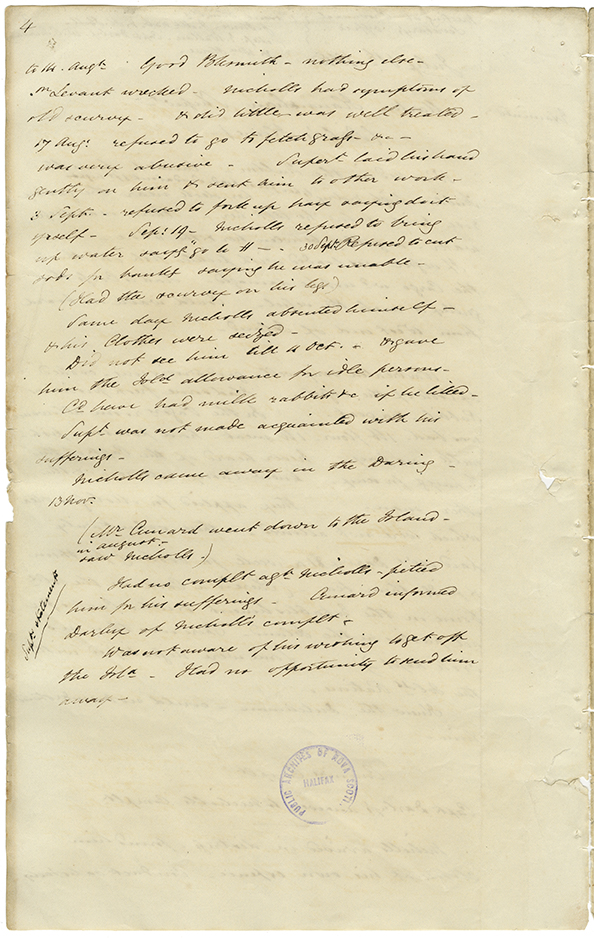 4
to 14. Augt. Good Blksmith - nothing else -
Sr. Levant wrecked - Nicholls had symptoms of
old scurvy - & did little - was well treated -
17 Aug: refused to go to fetch grass - &c -
was very abusive - Supert. laid his hand
gently on him & sent him to other work -
3 Sept. - refused to fork up hay saying do it
yrself - Sep: 19 - Nicholls refused to bring
up water sayg "go to H - - 30 Sept. Refused to cut
sods for bank saying he was unable -
(Had the scurvy on his legs)
Same day Nicholls absented himself -
& his Clothes were seized -
Did not see him till 4 Oct. - & gave
him the Isld allowance for idle persons -
Cd have had milk rabbits &c if he liked -
Supt. was not made acquainted with his
sufferings -
Nicholls came away in the Daring -
13 Nov.
(Mr. Cunard went down to the Island -
in august -
saw Nicholls.)
Supts. statement
Had no complt agt Nicholls - pitied
him for his sufferings - Cunard informed
Darby of Nicholls complt -
Was not aware of his wishing to get off
the Isld - Had no opportunity to send him
away -
PUBLIC ARCHIVES OF NOVA SCOTI
HALIFAX